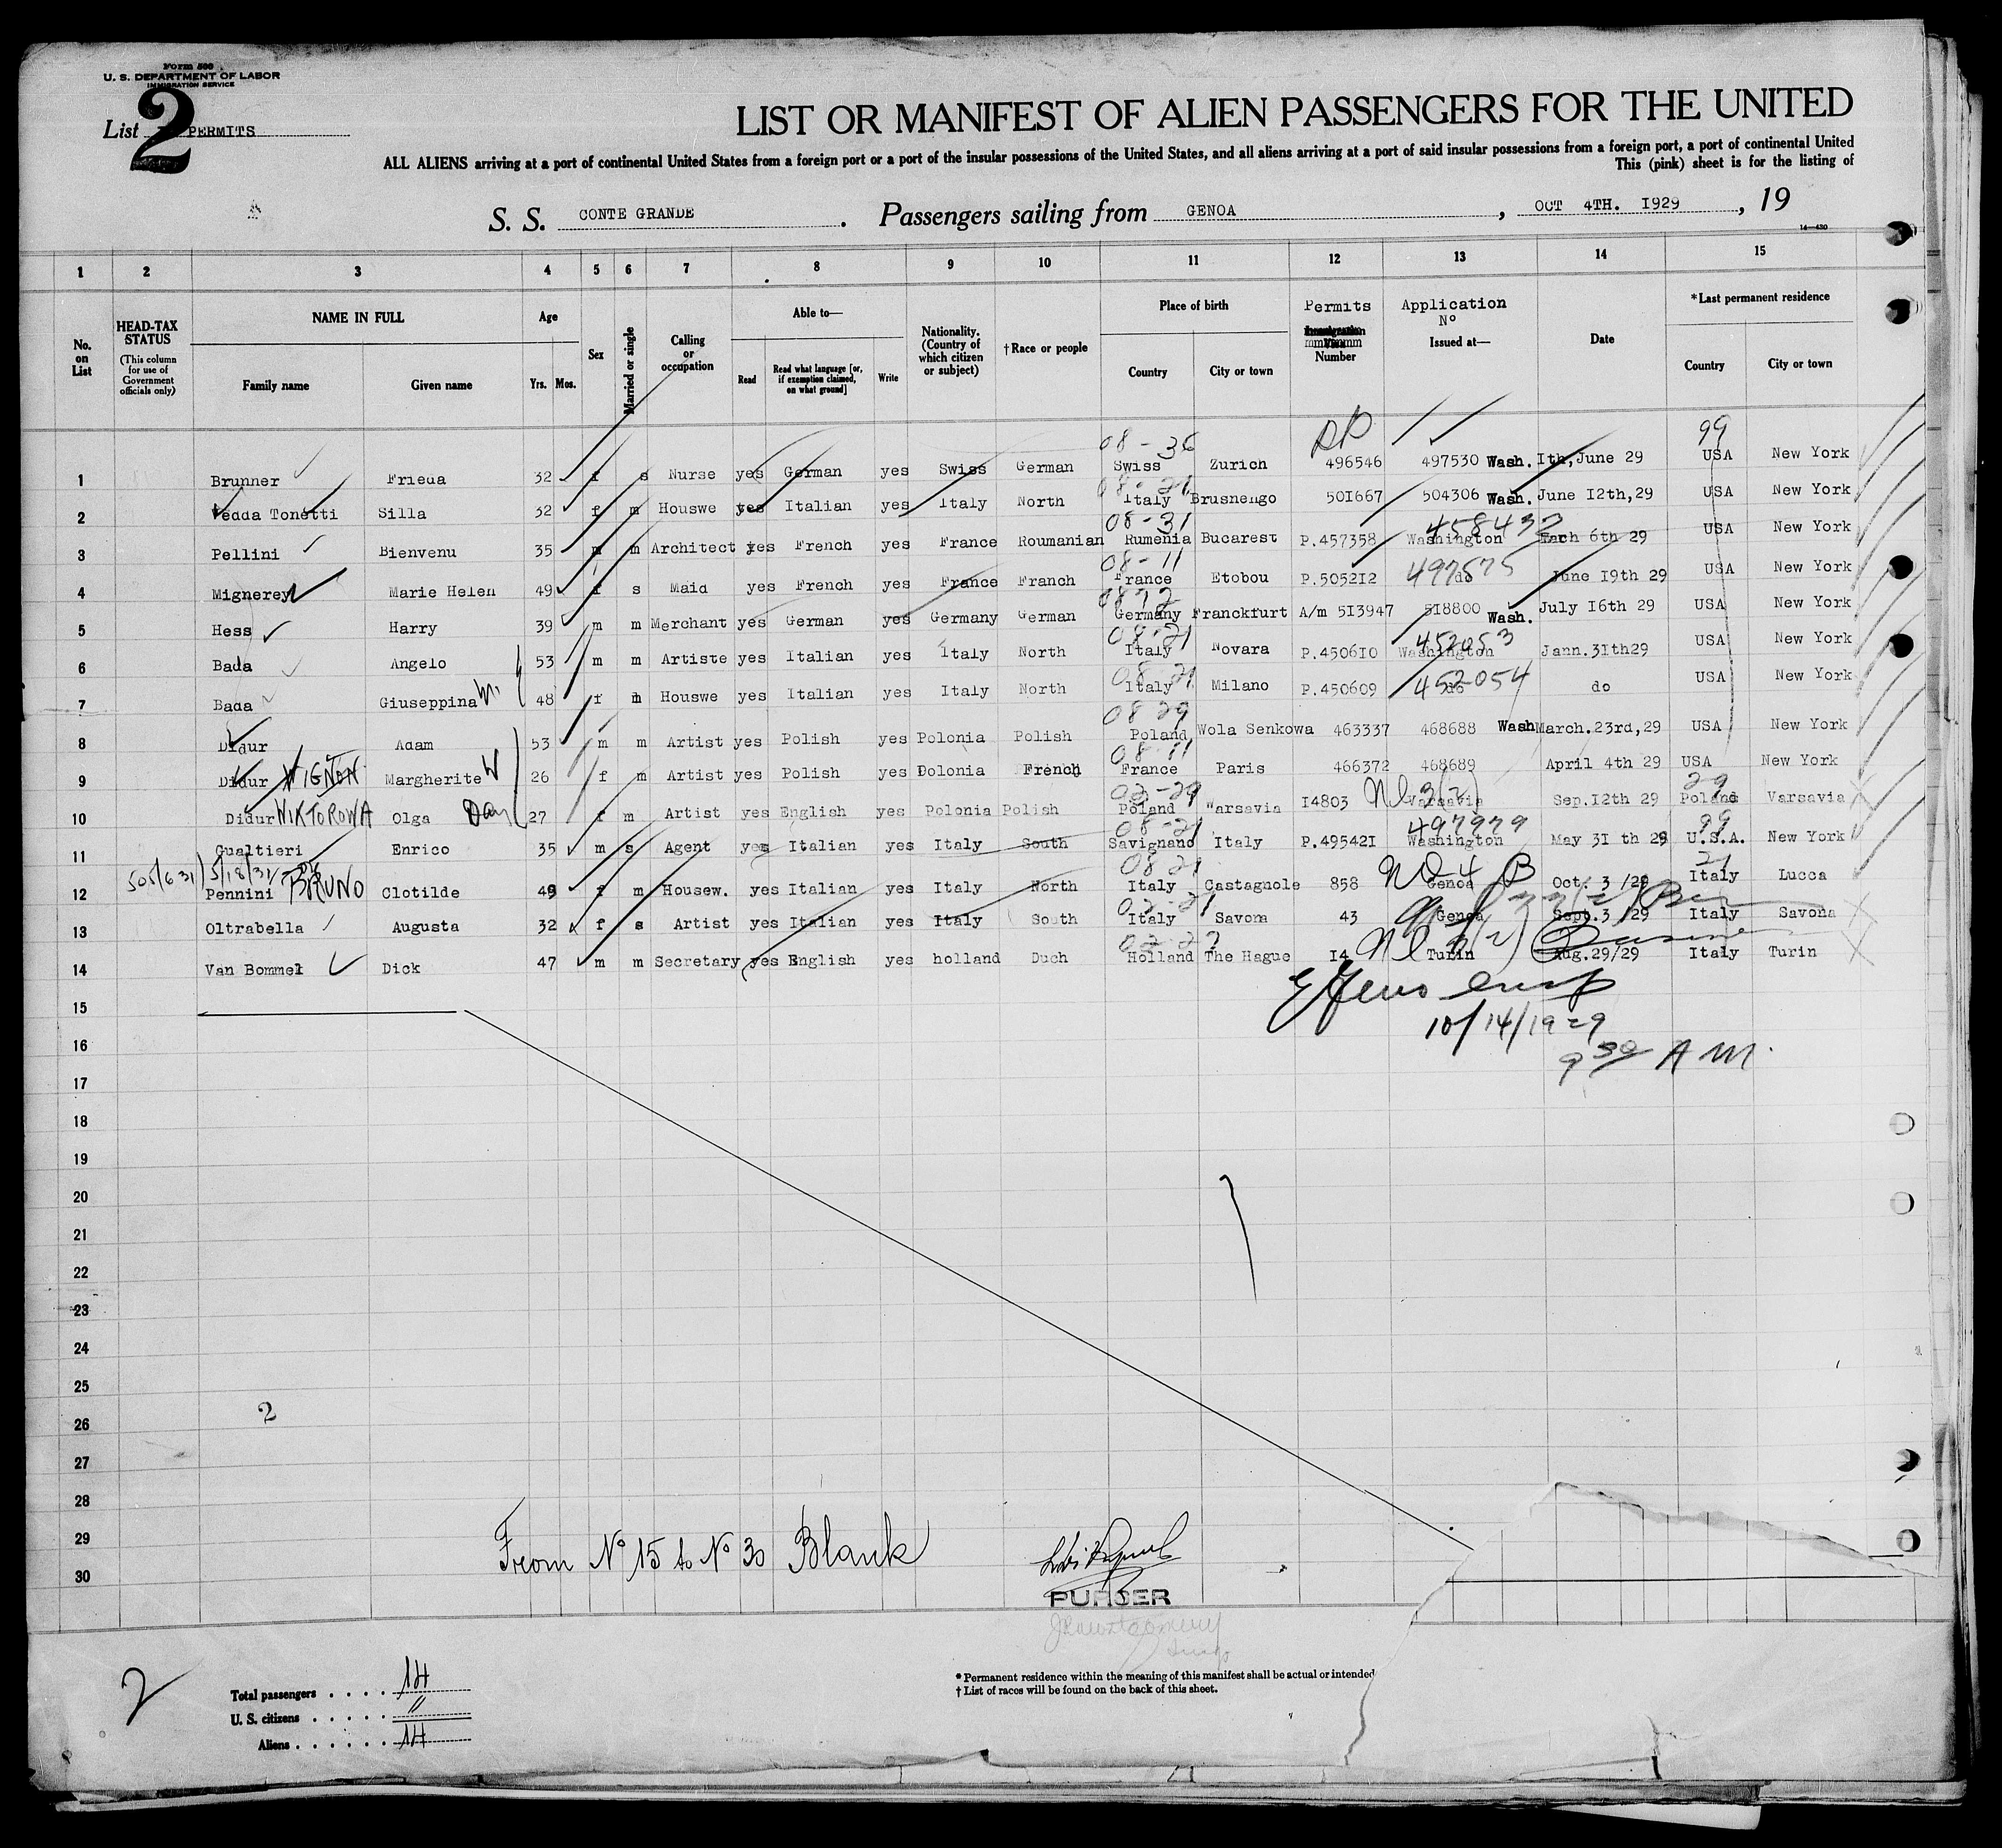 Form 500
U. S. DEPARTMENT OF LABOR
IMMIGRATION SERVICE
List PERMITS
2
LIST OR MANIFEST OF ALIEN PASSENGERS FOR THE UNITED
ALL ALIENS arriving at a port of continental United States from a foreign port or a port of the insular possessions of the United States, and all aliens arriving at a port of said insular possessions from a foreign port, a port of continental United
This (pink) sheet is for the listing of
S. S. CONTE GRANDE. Passengers sailing from GENOA, OCT 4TH. I929, 19
14—430
1 2 3 4 5 6 7 8 9 10 11 12 13 14 15
No. on List
HEAD-TAX STATUS (This column for use of Government officials only)
NAME IN FULL Family name Given name
Age Yrs. Mos.
Sex
Married or single
Calling or occupation
Able to— Read Read what language [or, if exemption claimed, on what ground] Write
Nationality. (Country of which citizen or subject)
†Race or people
Place of birth Country City or town
Permits Number
Application N° Issued at—
Date
*Last permanent residence Country City or town
RP 99
08-36
1 Brunner Frieda 32 f s Nurse yes German yes Swiss German Swiss Zurich 496546 497530 Wash. Ith,June 29 USA New York
08-21
2 Tonetti Silla 32 f m Houswe yes Italian yes Italy North Italy Brusnengo 50I667 504306 Wash. June I2th,29 USA New York
08-31 458432
3 Pellini Bienvenu 35 m m Architect yes French yes France Roumanian Rumenia Bucarest P.457358 Washington 6th 29 USA New York
08-11 497575
4 Mignerey Marie Helen 49 f s Maid yes French yes France Franch France Etobou P.5052I2 do June I9th 29 USA New York
0812
5 Hess Harry 39 m m Merchant yes German yes Germany German Germany Franckfurt A/m 5I3947 5I8800 Wash. July I6th 29 USA New York
08-21 452053
6 Bada Angelo 53 m m Artiste yes Italian yes Italy North Italy Novara P.4506I0 Washington Jann.3Ith29 USA New York
08-21 452054
7 Bada Giuseppina W. 48 f m Houswe yes Italian yes Italy North Italy Milano P.450609 do do USA New York
08 29
8 Didur Adam 53 m m Artist yes Polish yes Polonia Polish Poland Wola Senkowa 463337 468688 Wash March.23rd,29 USA New York
08-11
9 Didur WIGNON Margherite W 26 f m Artist yes Polish yes Polonia French France Paris 466372 468689 April 4th 29 USA New York
02-29 Nl 3(2) 29
10 Didur WIKTOROWA Olga Dau 27 f m Artist yes English yes Polonia Polish Poland Warsavia I4803 Varsavia Sep.I2th 29 Poland Varsavia
08-21 497979 99
11 Gualtieri Enrico 35 m s Agent yes Italian yes Italy South Savignano Italy P.49542I Washington May 3I th 29 U.S.A. New York
505/631 5/18/31
08 21 ND 4 B 21
12 Pennini BRUNO Clotilde 49 f m Housew. yes Italian yes Italy North Italy Castagnole 858 Genoa Oct. 3 /29 Italy Lucca
02-21
13 Oltrabella Augusta 32 f s Artist yes Italian yes Italy South Italy Savona 43 Genoa Sept.3 /29 Italy Savona
Nl 3(2)
14 Van Bommel Dick 47 m m Secretary yes English yes holland Duch Holland The Hague I4 Turin Aug.29/29 Italy Turin
15
10/14/1929
16
9 30 A M.
17
18
19
20
21
22
23
24
25
26 2
27
28
29
From No 15 to No 30 Blank
30
PURSER
2
Total passengers 14
U. S. citizens "
Aliens 14
* Permanent residence within the meaning of this manifest shall be actual or intended
† List of races will be found on the back of this sheet.